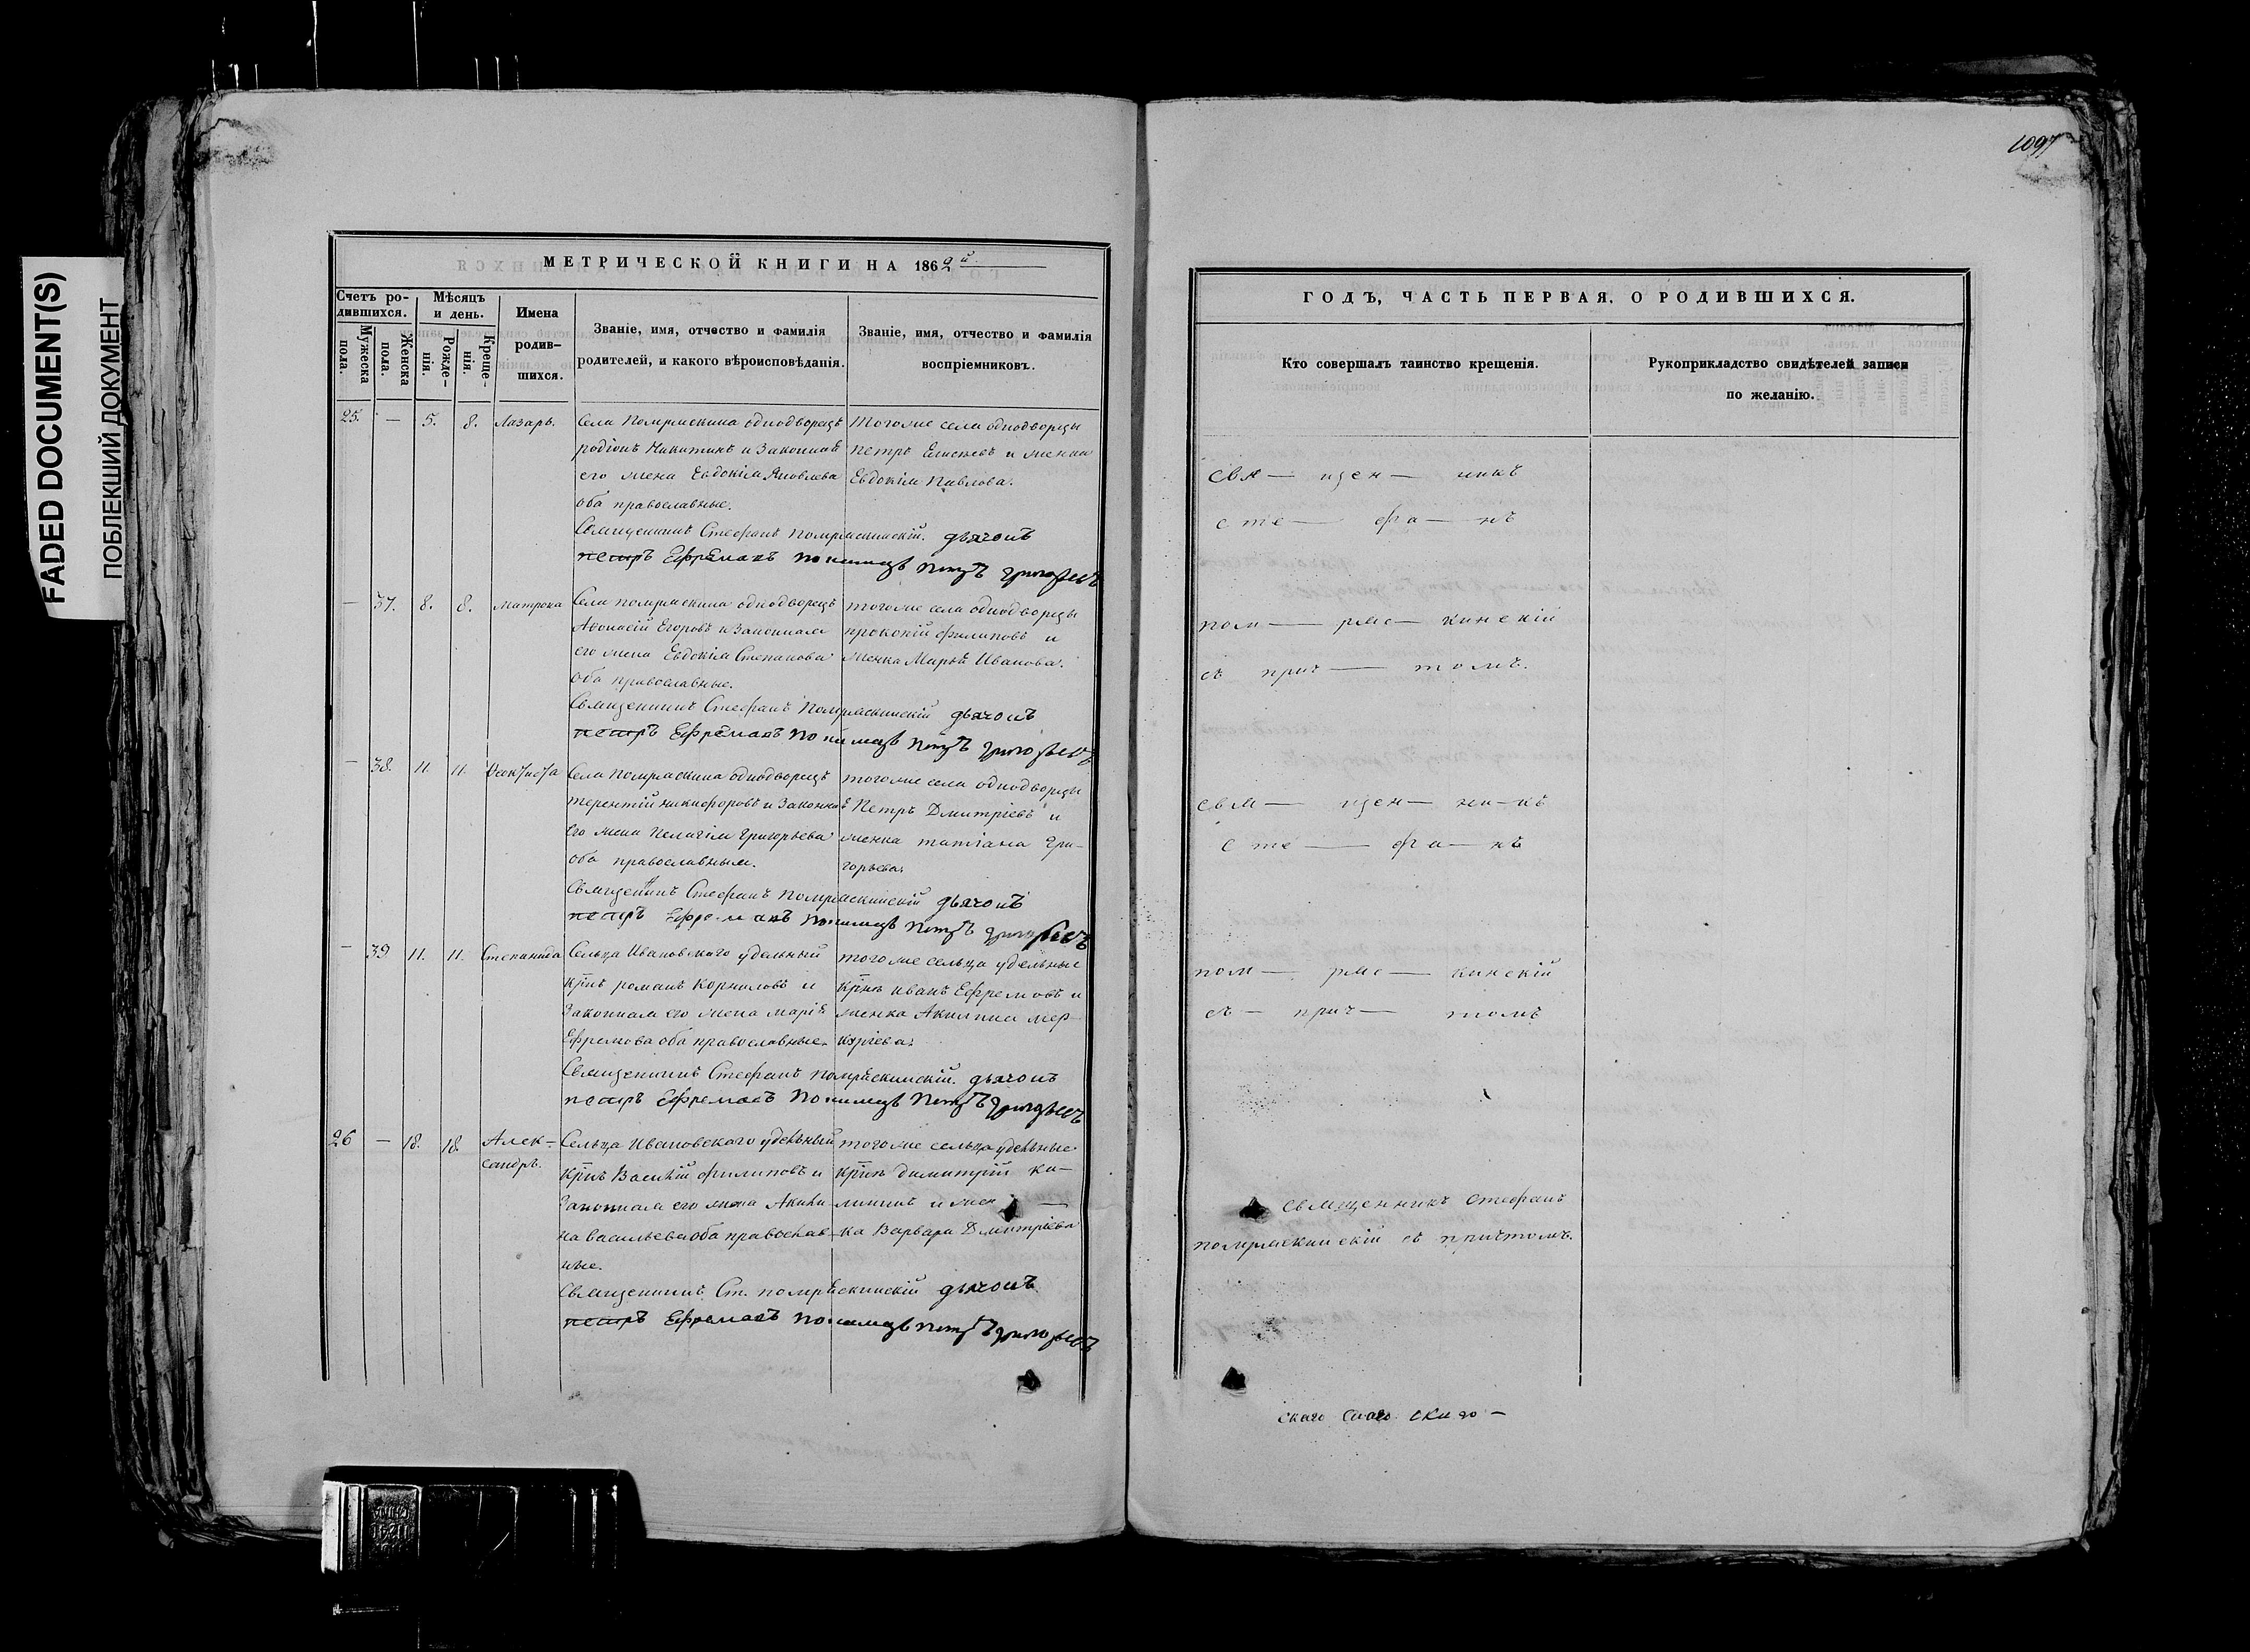 FADED DOCUMENT(S)
ПОБЛЕКШИЙ ДОКУМЕНТ
1097
МЕТРИЧЕСКОЙ КНИГИ НА 1862й
Счетъ ро-
дившихся.
Мужеска
пола.
Женска
пола.
Мѣсяцъ
и день.
Рожде-
нія.
Креще-
нія.
Имена
родив-
шихся.
Званіе, имя, отчество и фамилія
родителей, и какого вѣроисповѣданія.
Званіе, имя, отчество и фамилія
воспріемниковъ.
25. — 5. 8. Лазарь.
Села Помряскина однодворецъ
родіонъ Никитинъ и Законная
его жена Евдокія Яковлева
оба православные.
Тогоже села однодворцы
петръ Елисеевъ и женка
Евдокія Павлова.
Священникъ Стефанъ Помряскинскій. дьячокъ
петръ Ефремовъ пономарь петръ григорьевъ
— 37. 8. 8. Матрона
Села помряскина однодворецъ
Афонасій Егоровъ и Законная
его жена Евдокія Степанова
оба православные.
тогоже села однодворцы
прокопій филиповъ и
женка Марья Иванова.
Священникъ Стефанъ Помряскинскій дьячокъ
петръ Ефремовъ пономарь петръ григорьевъ
— 38. 11. 11. Феоктиста
Села помряскина однодворецъ
терентій никифоровъ и Законная
его жена Пелагія григорьева
оба православныя.
тогоже села однодворцы
Петръ Дмитріевъ и
женка татіана Гри-
горьева.
Священникъ Стефанъ помряскинскій дьячокъ
петръ Ефремовъ пономарь петръ григорьевъ
— 39. 11. 11. Степанида
Сельца Ивановскаго удельный
крнъ романъ Корниловъ и
Законная его жена марія
Ефремова оба православные.
тогоже сельца удельные
крне иванъ Ефремовъ и
женка Акилина мер-
куріева.
Священникъ Стефанъ помряскинскій. дьячокъ
петръ Ефремовъ пономарь петръ григорьевъ
26 — 18. 18. Алек-
сандръ.
Сельца Ивановскаго удельный
крнъ Василій филиповъ и
Законная его жена Акили-
на васильева оба православ-
ные.
тогоже сельца удельные
крне димитрій ка-
лининъ и жен —
ка Варвара Дмитріева
Священникъ Ст. помряскинскій дьячокъ
петръ Ефремовъ пономарь петръ григорьевъ
ГОДЪ, ЧАСТЬ ПЕРВАЯ, О РОДИВШИХСЯ.
Кто совершалъ таинство крещенія.
Рукоприкладство свидѣтелей записи
по желанію.
свя— щен— никъ
сте— фа— нъ
пом— ряс— кинскій
съ прич— томъ.
свя— щен— ни—къ
сте— фа— нъ
пом— ряс— кинскій
съ— прич— томъ
священникъ Стефанъ
помряскинскій съ причтомъ.
скаго скаго скаго —